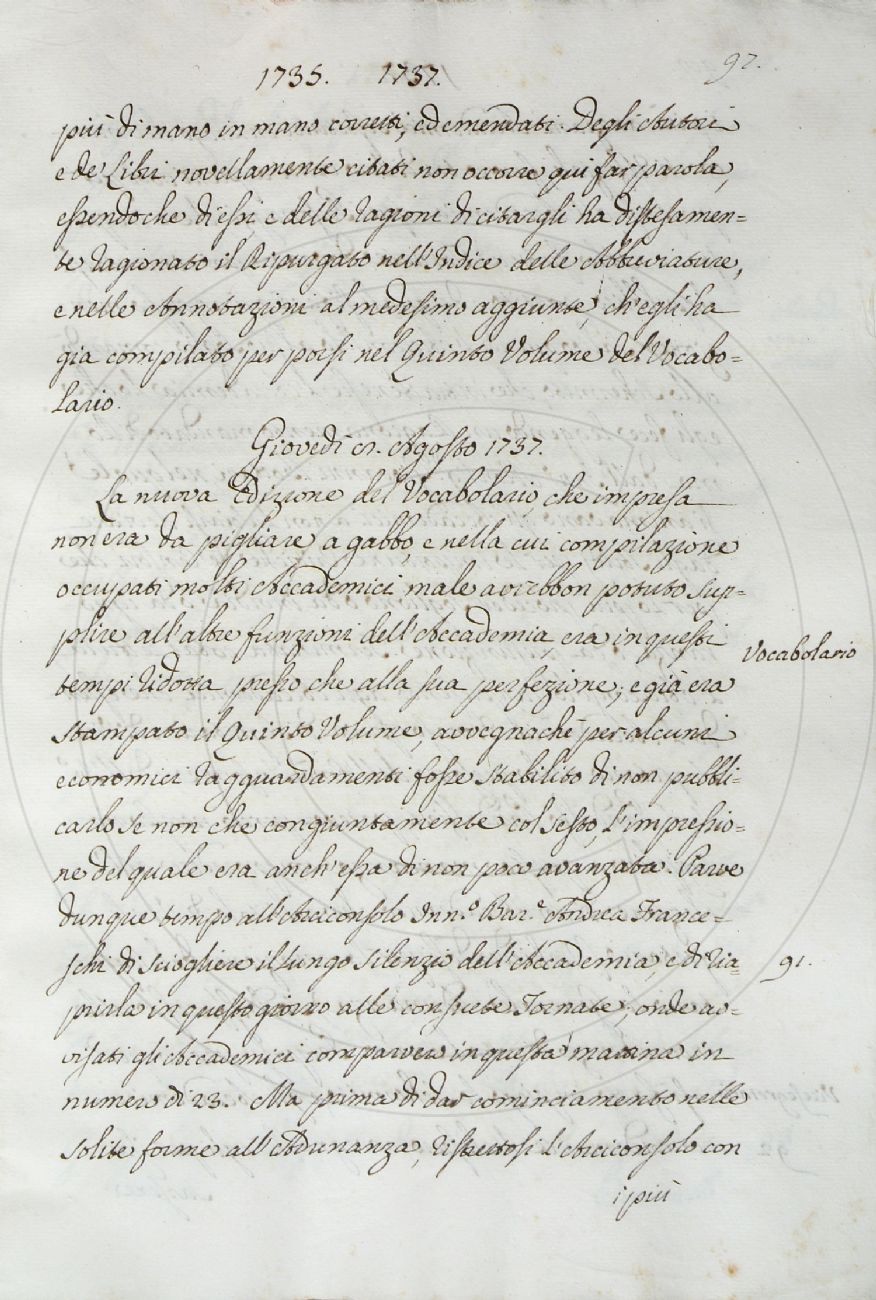 97.
1735. 1737.
più di mano in mano corretti, ed emendati. Degli Autori
e de' Libri novellamente citati non occorre qui far parola,
essendoche di essi, e delle ragioni di citargli ha distesamen=
te ragionato il Ripurgato nell'Indice delle Abbreviature,
e nelle Annotazioni al medesimo aggiunte, ch'egli ha
gia compilato per porsi nel Quinto Volume del Vocabo=
lario.
Giovedì Agosto 1737.
La nuova Edizione del Vocabolario che impresa
non era da pigliare a gabbo, e nella cui compilazione
occupati molti Accademici male avrebbon potuto sup=
plire all'altre funzioni dell'Accademia, era in questi
Vocabolario
tempi ridotta presso che alla sua perfezione, e già era
stampato il Quinto Volume, avvegnachè per alcuni
economici ragguardamenti fosse stabilito di non pubbli=
carlo se non che congiuntamente col sesto, l'impressio=
ne del quale era anch'essa di non poco avanzata. Parve
dunque tempo all'Arciconsolo Inn.º Bar.e Andrea France=
schi di sciogliere il lungo silenzio dell'Accademia, e di ria=
91.
prirla in questo giorno alle consuete Tornate, onde av=
visati gli Accademici comparvero in questa mattina in
numero di 23. Ma prima di dar cominciamento nelle
solite forme all'Adunanza, ristrettosi l'Arciconsolo con
i più